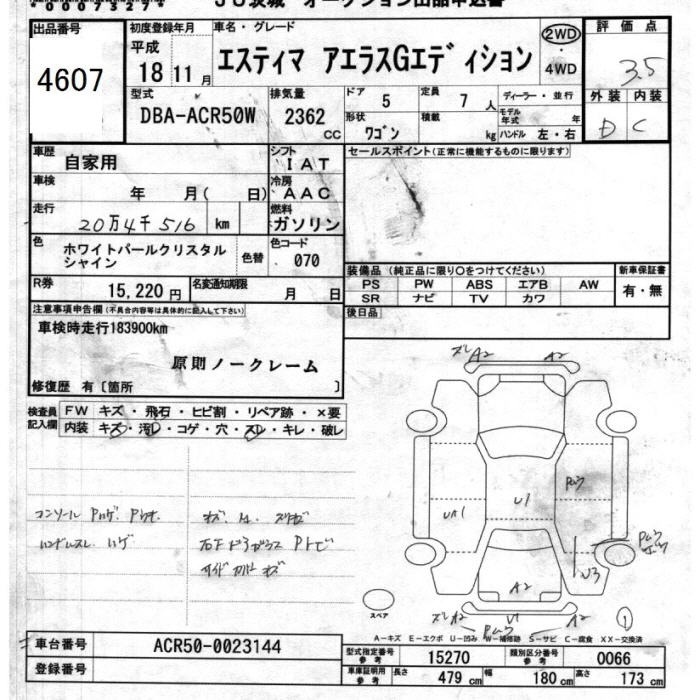 JU茨城 オークション出品申込書
出品番号
4607
初度登録年月
平成
18 11月
車名・グレード
エスティマ アエラスGエディション
2WD
・
4WD
評価点
3.5
型式
DBA-ACR50W
排気量
2362
cc
ドア
5
定員
7 人
ディーラー・並行
形状
ワゴン
積載
kg
モデル年式
年
ハンドル 左・右
外装 内装
D C
車歴
自家用
シフト
IAT
セールスポイント(正常に機能するものに限ります)
車検
年 月( 日)
冷房
AAC
走行
20万4千516 km
燃料
ガソリン
色
ホワイトパールクリスタル
シャイン
色替
色コード
070
R券
15,220 円
名変通知期限
月 日
装備品(純正品に限り○をつけてください)
PS PW ABS エアB AW
SR ナビ TV カワ
新車保証書
有・無
後日品
注意事項申告欄(不具合内容等は具体的に記入して下さい)
車検時走行183900km
原則ノークレーム
修復歴 有〔箇所 〕
検査員
記入欄
FW キズ・飛石・ヒビ割・リペア跡・×要
内装 キズ・汚レ・コゲ・穴・スレ・キレ・破レ
ズレ A2 A2
コンソール Pハゲ
ハンドルスレ ハゲ
U1
A2
U3
ズレ A2 U1 A2
スペア
①
A－キズ E－エクボ U－凹み W－補修跡 S－サビ C－腐食 XX－交換済
車台番号
ACR50-0023144
登録番号
型式指定番号
参考
15270
類別区分番号
参考
0066
車庫証明用
参考
長さ 479 cm 幅 180 cm 高さ 173 cm